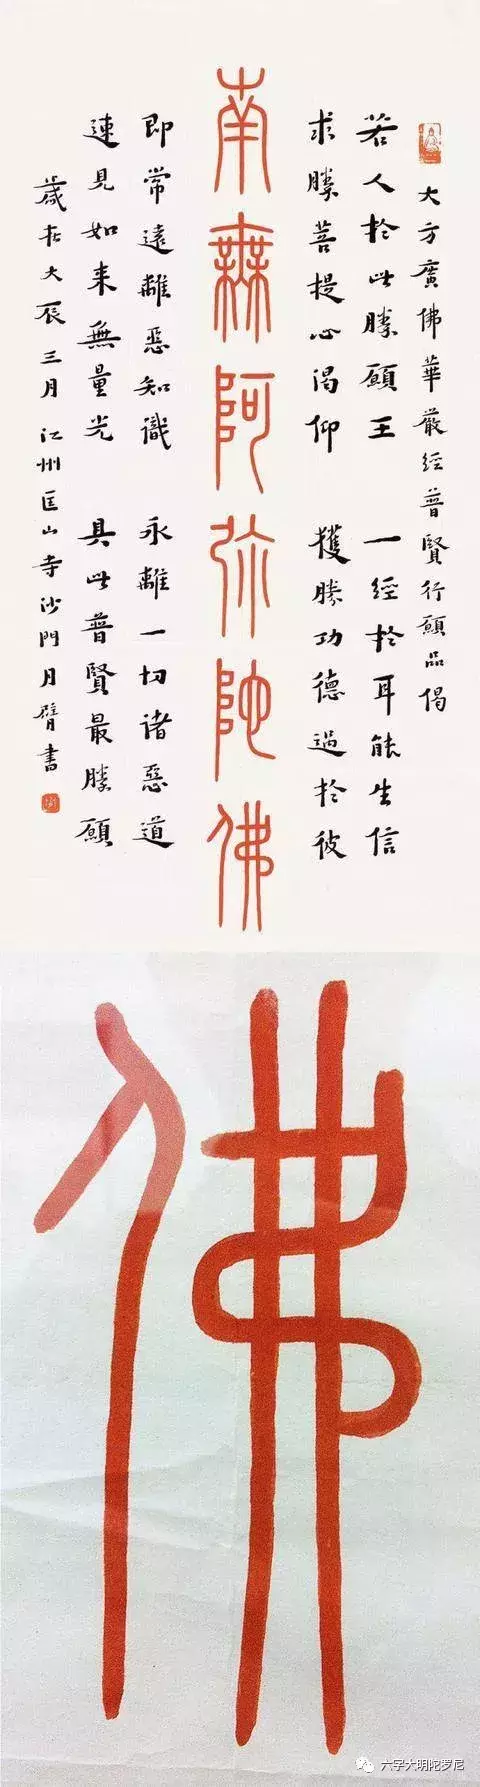 大方廣佛華嚴經普賢行願品偈
若人於此勝願王 一經於耳能生信
求勝菩提心渴仰 獲勝功德過於彼
南無阿彌陀佛
即常遠離惡知識 永離一切諸惡道
速見如来無量光 具此普賢最勝願
歲在大辰三月 江州匡山寺沙門月臂書
佛
六字大明陀罗尼